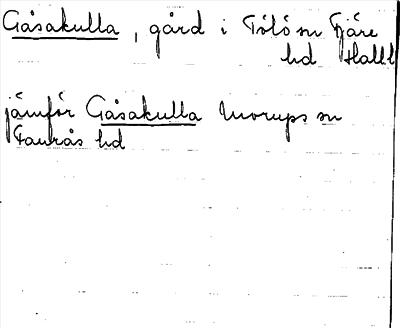 Gåsakulla, gård i Fölö sn Fjäre
hd Hall
jämför Gåsakulla Morups sn
Faurås hd